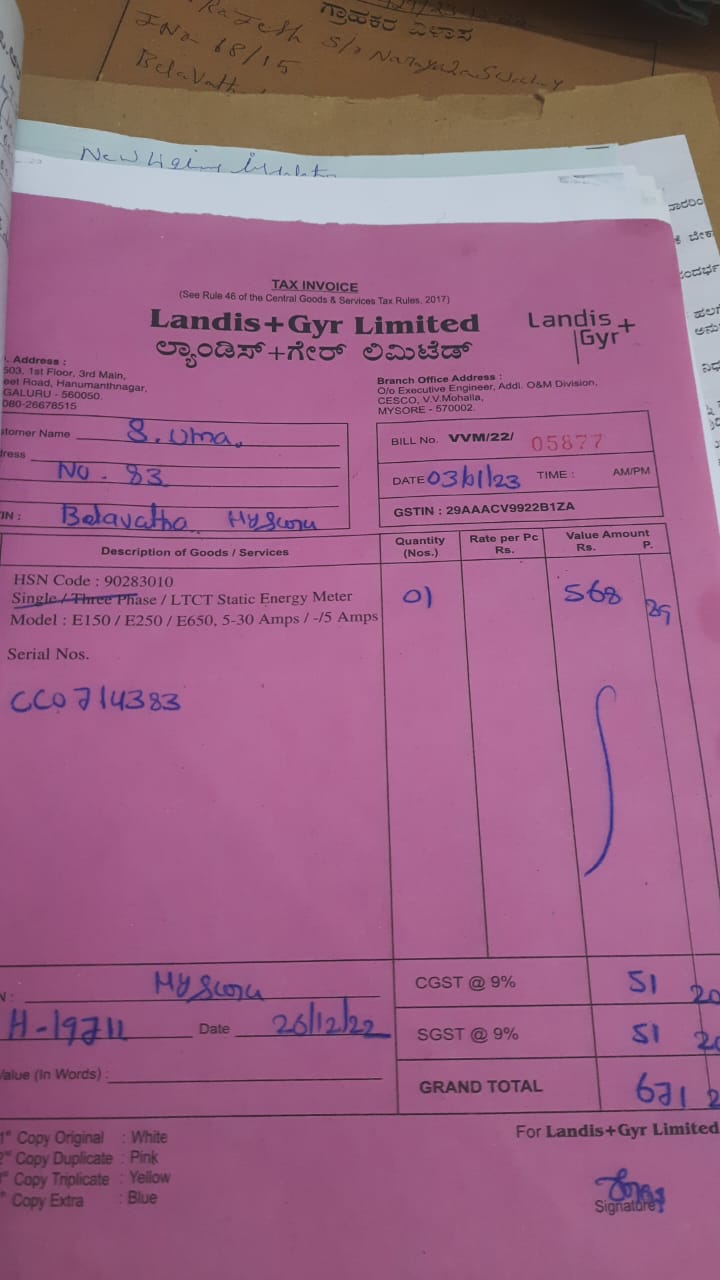 Rajesh S/o Narayanaswamy
ಗ್ರಾಹಕರ ವಿಳಾಸ
No- 68/15
Belavath
New
TAX INVOICE
(See Rule 46 of the Central Goods & Services Tax Rules, 2017)
Landis+Gyr Limited
Landis
Gyr+
ಲ್ಯಾಂಡಿಸ್+ಗೇರ್ ಲಿಮಿಟೆಡ್
Address :
503, 1st Floor, 3rd Main,
eet Road, Hanumanthnagar,
GALURU - 560050.
080-26678515
Branch Office Address :
O/o Executive Engineer, Addl. O&M Division,
CESCO, V.V.Mohalla,
MYSORE - 570002.
stomer Name S. Uma.
dress
No. 83
IN : Belavatha Mysoru
BILL No. VVM/22/ 05877
DATE 03/01/23 TIME : AM/PM
GSTIN : 29AAACV9922B1ZA
Description of Goods / Services Quantity (Nos.) Rate per Pc Rs. Value Amount Rs. P.
HSN Code : 90283010
Single / Three Phase / LTCT Static Energy Meter 01 568 89
Model : E150 / E250 / E650, 5-30 Amps / -/5 Amps
Serial Nos.
CC0714383
Mysoru
CGST @ 9% 51 20
H-19711 Date 26/12/22
SGST @ 9% 51 20
Value (In Words) :
GRAND TOTAL 671 2
1st Copy Original : White
2nd Copy Duplicate : Pink
Copy Triplicate : Yellow
Copy Extra : Blue
For Landis+Gyr Limited
Signature